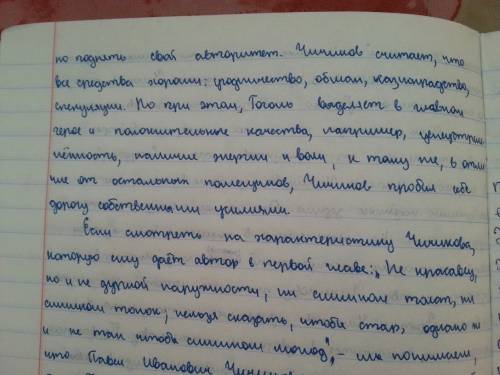 но поднять свой авторитет. Чичиков считает, что
все средства хороши: мошенничество, обман, казнокрадство,
спекуляции. Но при этом, Гоголь выделяет в главном
герое и положительные качества, например, целеустрем-
лённость, наличие энергии и воли, к тому же, в отли-
чие от остальных помещиков, Чичиков пробил себе
дорогу собственными усилиями.
Если смотреть на характеристику Чичикова,
которую ему даёт автор в первой главе: „Не красавец,
но и не дурной наружности, ни слишком толст, ни
слишком тонок; нельзя сказать, чтобы стар, однако ж
и не так чтобы слишком молод", – мы понимаем,
что Павел Иванович Чичиков